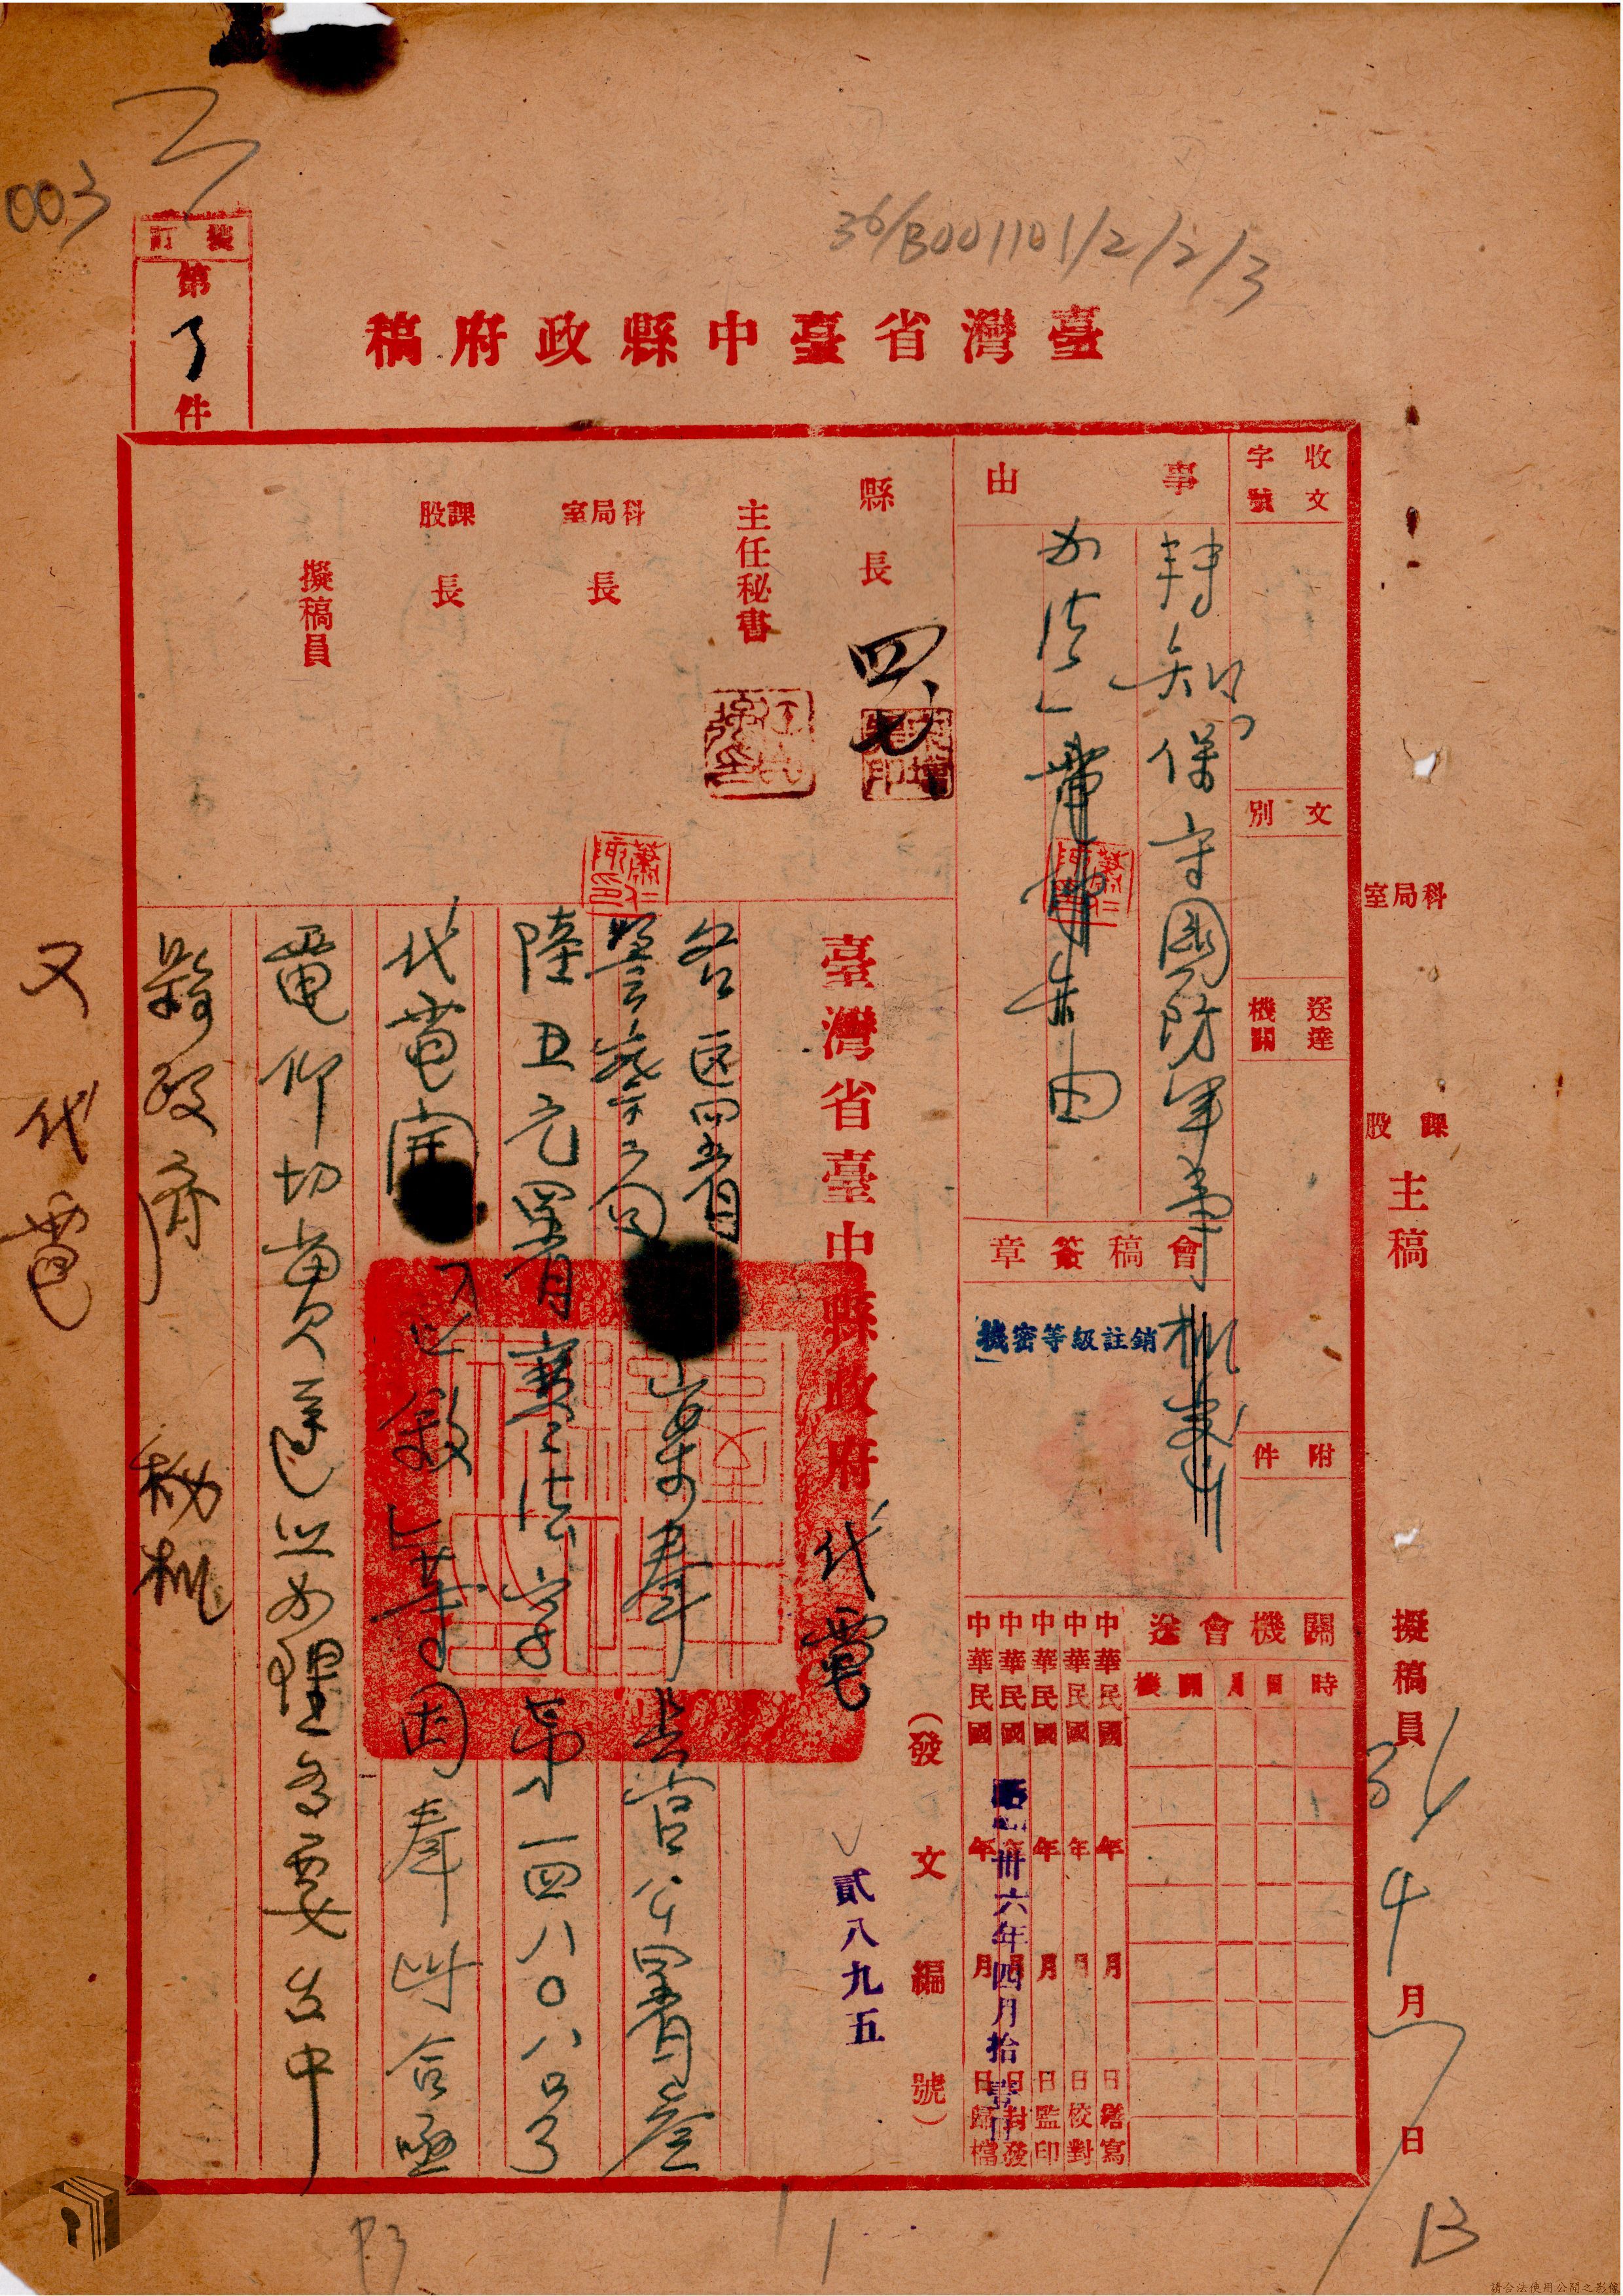 003
36/B001101/2/2/3
裝訂
第
件
臺灣省臺中縣政府稿
收文
字號
文別
送達機關
附件
事由
轉知保守國防軍事機密
辦法一電希由
會稿簽章
機密等級註銷
縣長
四、七
主任秘書
科局室長
課股長
擬稿員
科局室
課股
主稿
擬稿員
36
4
月
7
日
關機會送
時日月關機
中華民國 年 月 日繕寫
中華民國 年 月 日校對
中華民國 年 月 日監印
中華民國 年 月 日封發
中華民國 年 月 日歸檔
卅六年四月拾壹
臺灣省臺中縣政府代電
(發文編號)
貳八九五
各區署
警察局
案奉長官公署叄
陸丑元署肖法字第一四八〇八號
代電開
敘等因奉此合亟
電仰切實遵照辦理為要台中
縣政府
秘機
又代電
13
請合法使用公開之影像